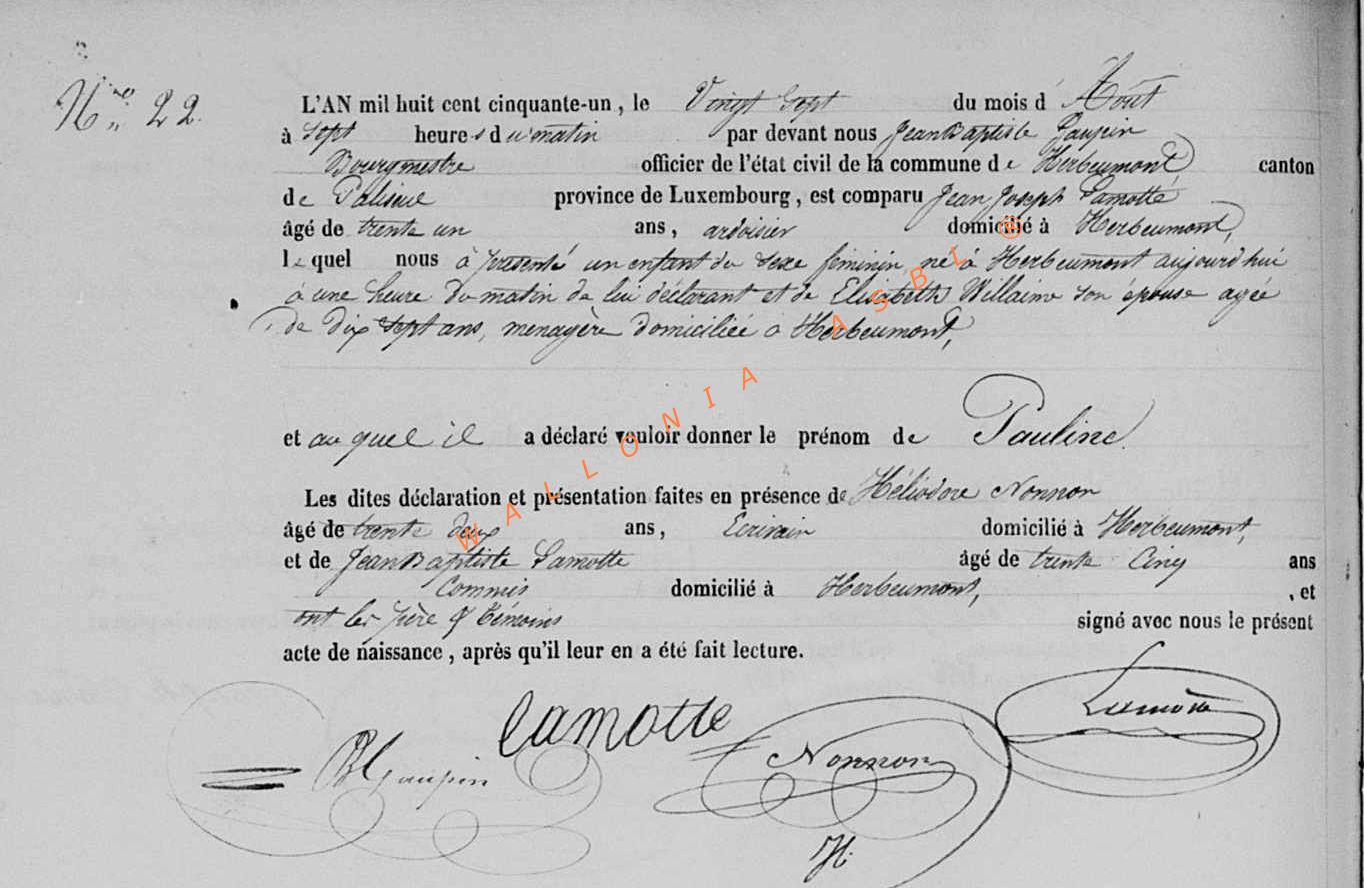 Nro 22.
L'AN mil huit cent cinquante-un, le Vingt Sept du mois d'Août
à Sept heures du matin par devant nous Jean Baptiste Gaupin
Bourgmestre officier de l'état civil de la commune de Herbeumont canton
de Paliseul province de Luxembourg, est comparu Jean Joseph Lamotte
âgé de trente un ans, ardoisier domicilié à Herbeumont,
lequel nous à présenté un enfant du sexe féminin, né à Herbeumont aujourd'hui
à une heure du matin de lui déclarant et de Elisabeth Willaime son épouse agée
de dix sept ans, menagère domiciliée à Herbeumont,
et au quel il a déclaré vouloir donner le prénom de Pauline
Les dites déclaration et présentation faites en présence de Héliodore Nonnon
âgé de trente deux ans, Ecrivain domicilié à Herbeumont,
et de Jean Baptiste Lamotte âgé de trente Cinq ans
Commis domicilié à Herbeumont, , et
ont les père & témoins signé avec nous le présent
acte de naissance, après qu'il leur en a été fait lecture.
Lamotte
Gaupin Lamotte Nonnon
H.
WALLONIA ASBL ®